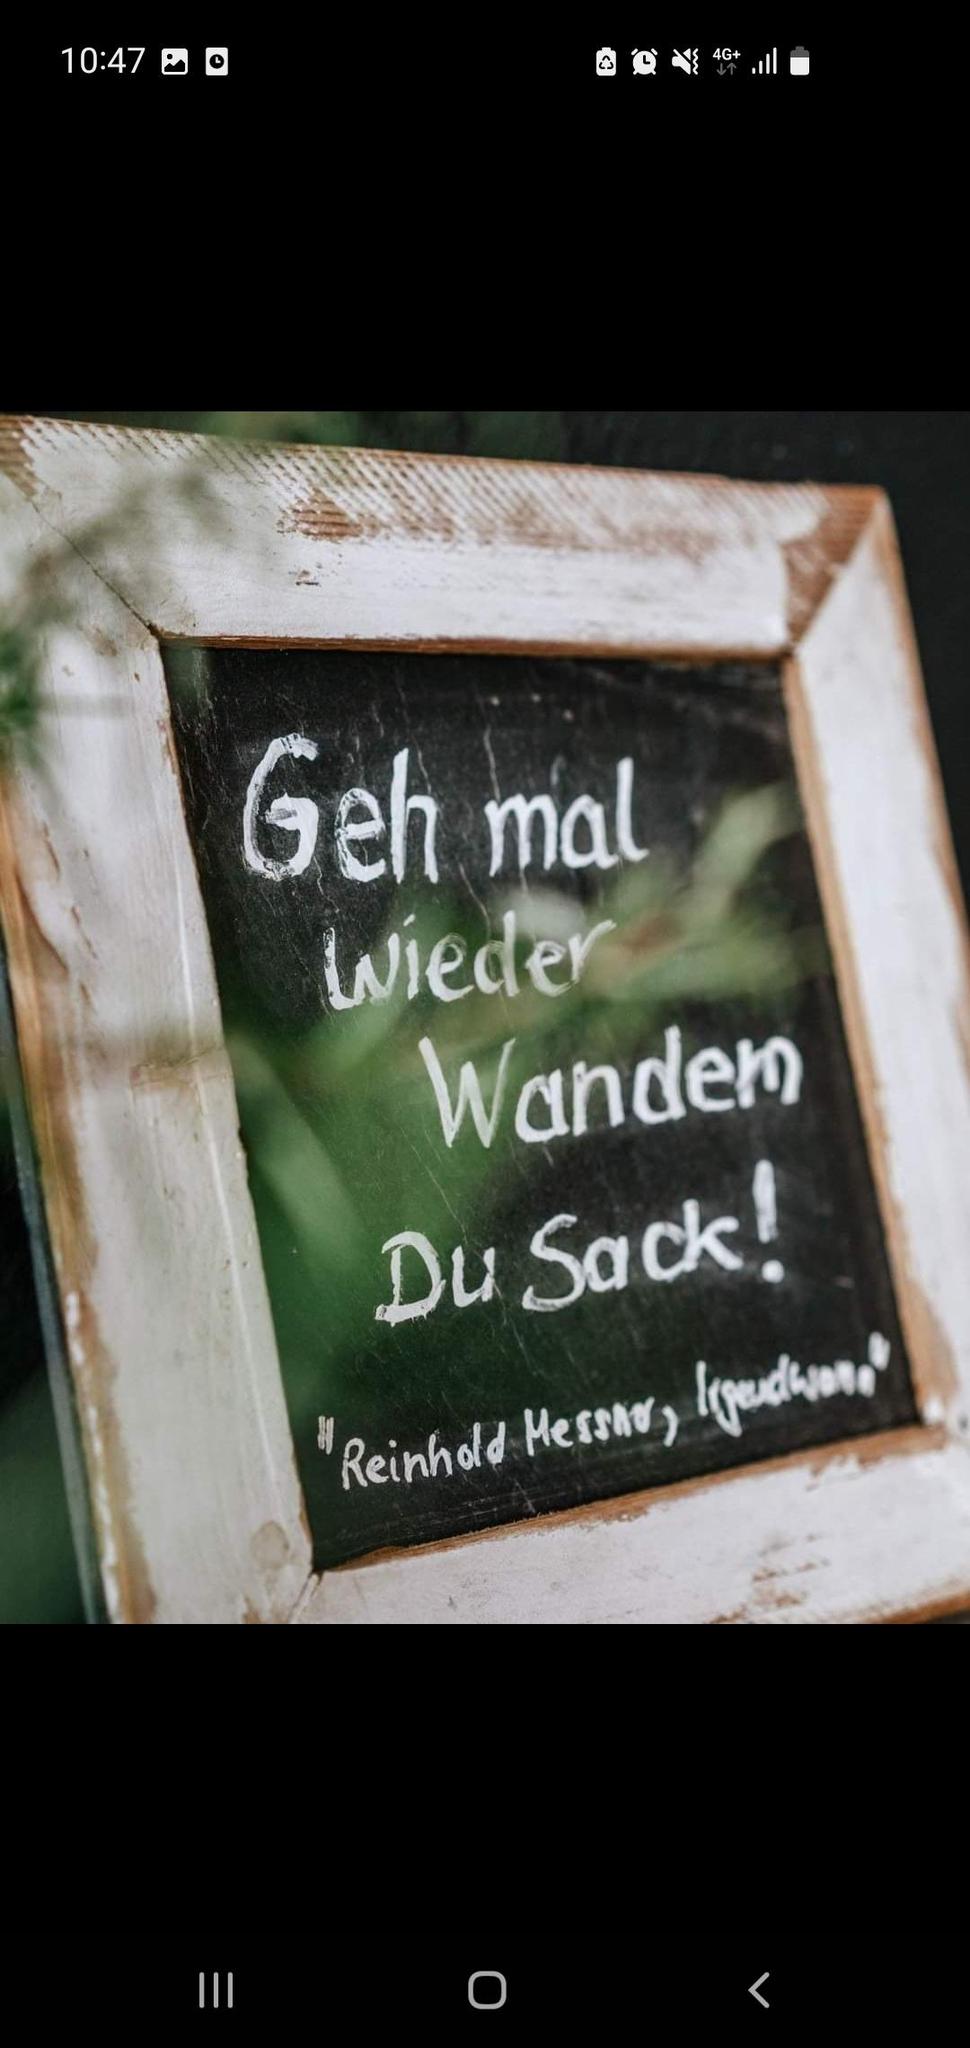 10:47
4G+
Geh mal
wieder
Wandern
Du Sack!
"Reinhold Messner, Irgendwann"